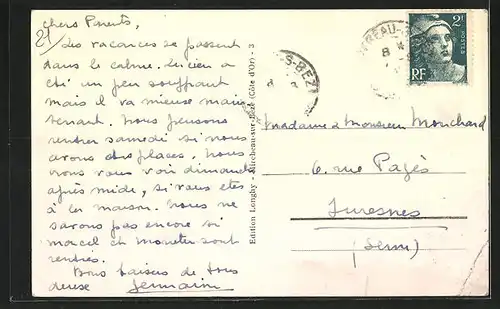 chers Parents,
2)
Les vacances se passent
dans le calme. Lucien a
été un peu souffrant
mais il va mieuse main
tenant. Nous pensons
rentrer samedi si nous
avons des places. Nous
irons vous voir dimanche
après midi, si vous etes
à la maison. Nous ne
savons pas encore si
marcel et sont
rentrés.
Bons baisers de tous
Germain
Edition Longhy - Mirebeau-sur-Bèze (Côte d'Or) - 3
S-BEZ
REAU-S
2F
POSTES
RF
Madame & Monsieur Mouchard
6, rue Pagès
Suresnes
(Seine)